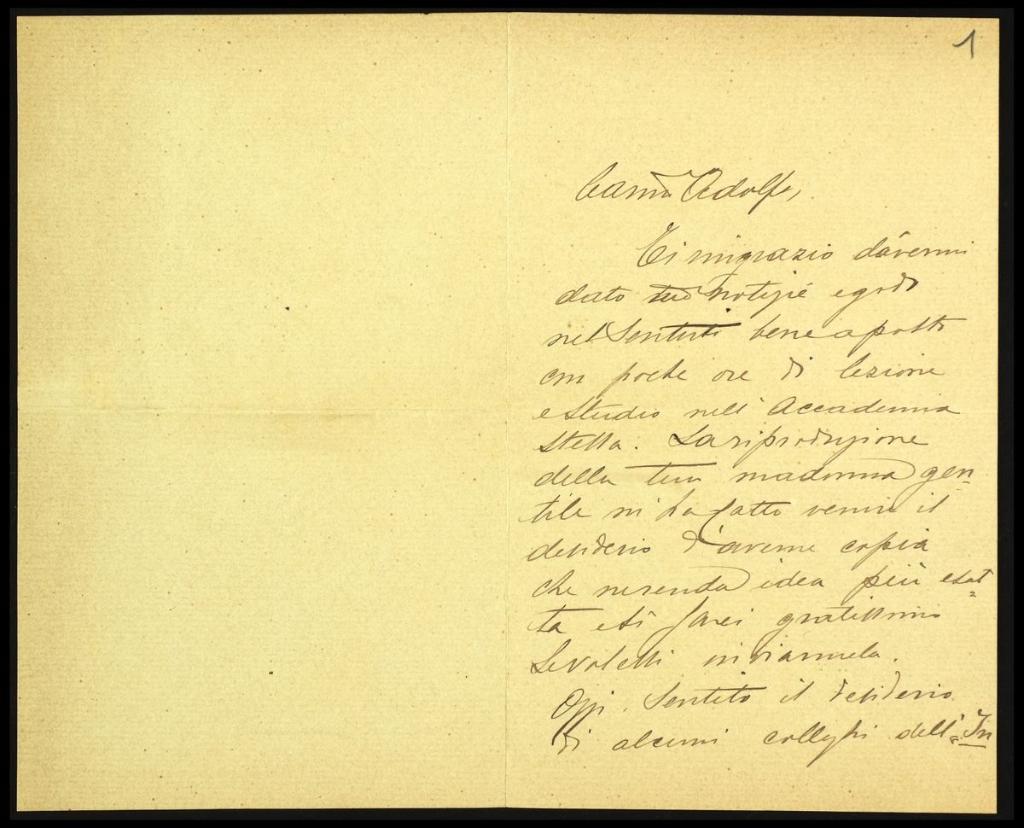 1
Carm̃o Adolfo,
Ti ringrazio d'avermi
dato tue notizie e godo
nel sentirti bene a posto
con poche ore di lezione
e studio nell'Accademia
stessa. La riproduzione
della tua madonna gen=
tile mi ha fatto venire il
desiderio d'averne copia
che ne renda idea più esat=
ta e ti sarei gratissimo
se volessi inviarmela.
Oggi, sentito il desiderio
di alcuni colleghi dell'In